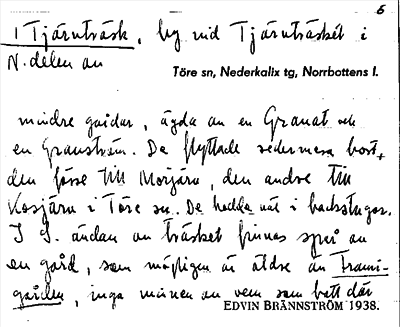 6
1 Tjärnträsk, by vid Tjärnträsket i
N. delen av
Töre sn, Nederkalix tg, Norrbottens l.
mindre gårdar, ägda av en Granat och
en Granström. De flyttade sedermera bort,
den förre till Morjärv, den andre till
Kosjärv i Töre sn. De hodda när i backstugor.
I S. ändan av träsket finnas spår av
en gård, som möjligen är äldre än Frami-
gården, inga minnen av vem som bott där
EDVIN BRÄNNSTRÖM 1938.